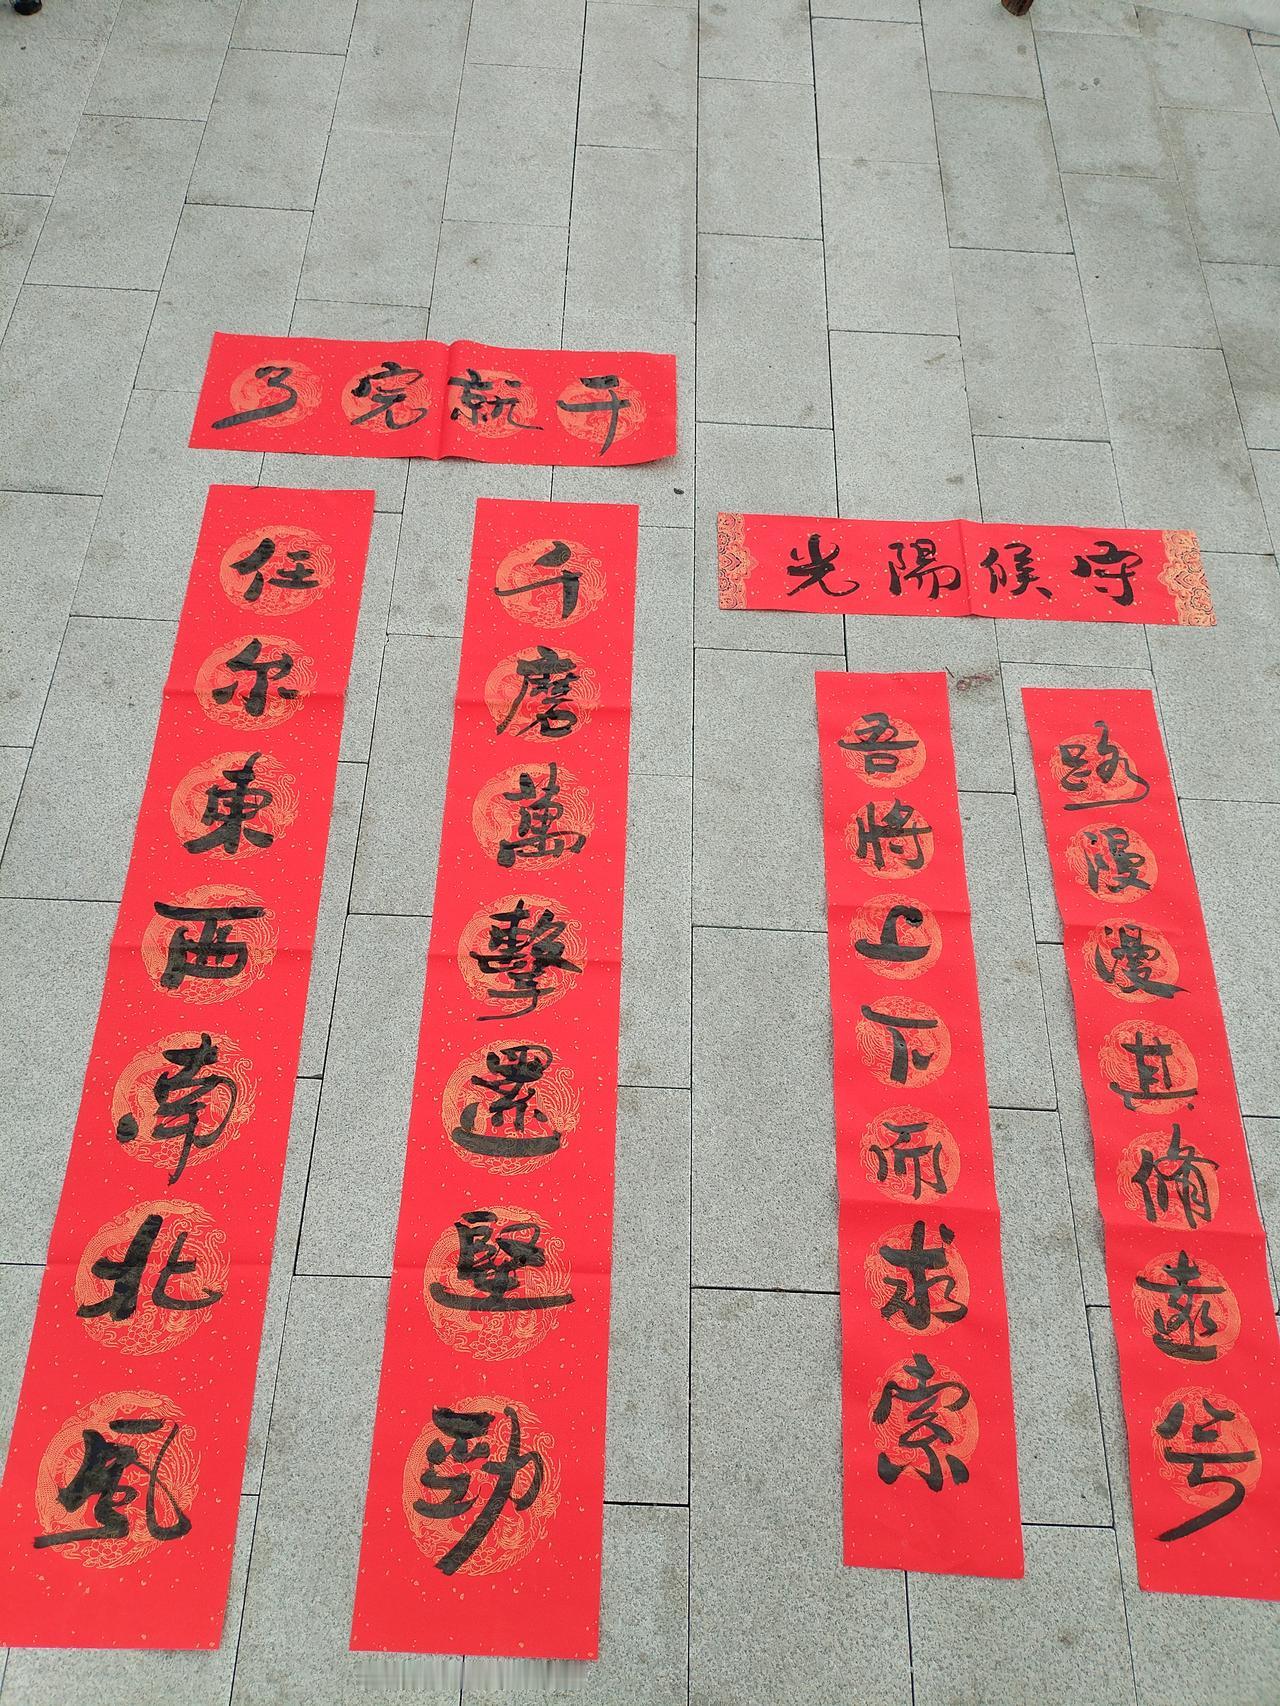 干就完了
千磨萬擊還堅勁
任尔東西南北風
守候陽光
路漫漫其脩遠兮
吾將上下而求索